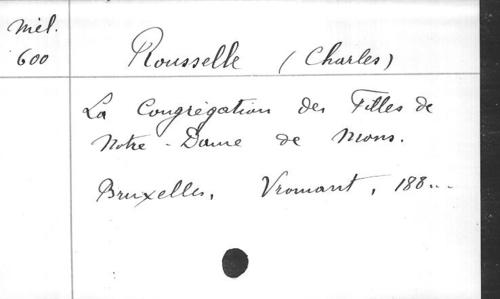 Mél.
600
Rousselle (Charles)
La Congrégation des Filles de
Notre-Dame de Mons.
Bruxelles, Vromant, 188...